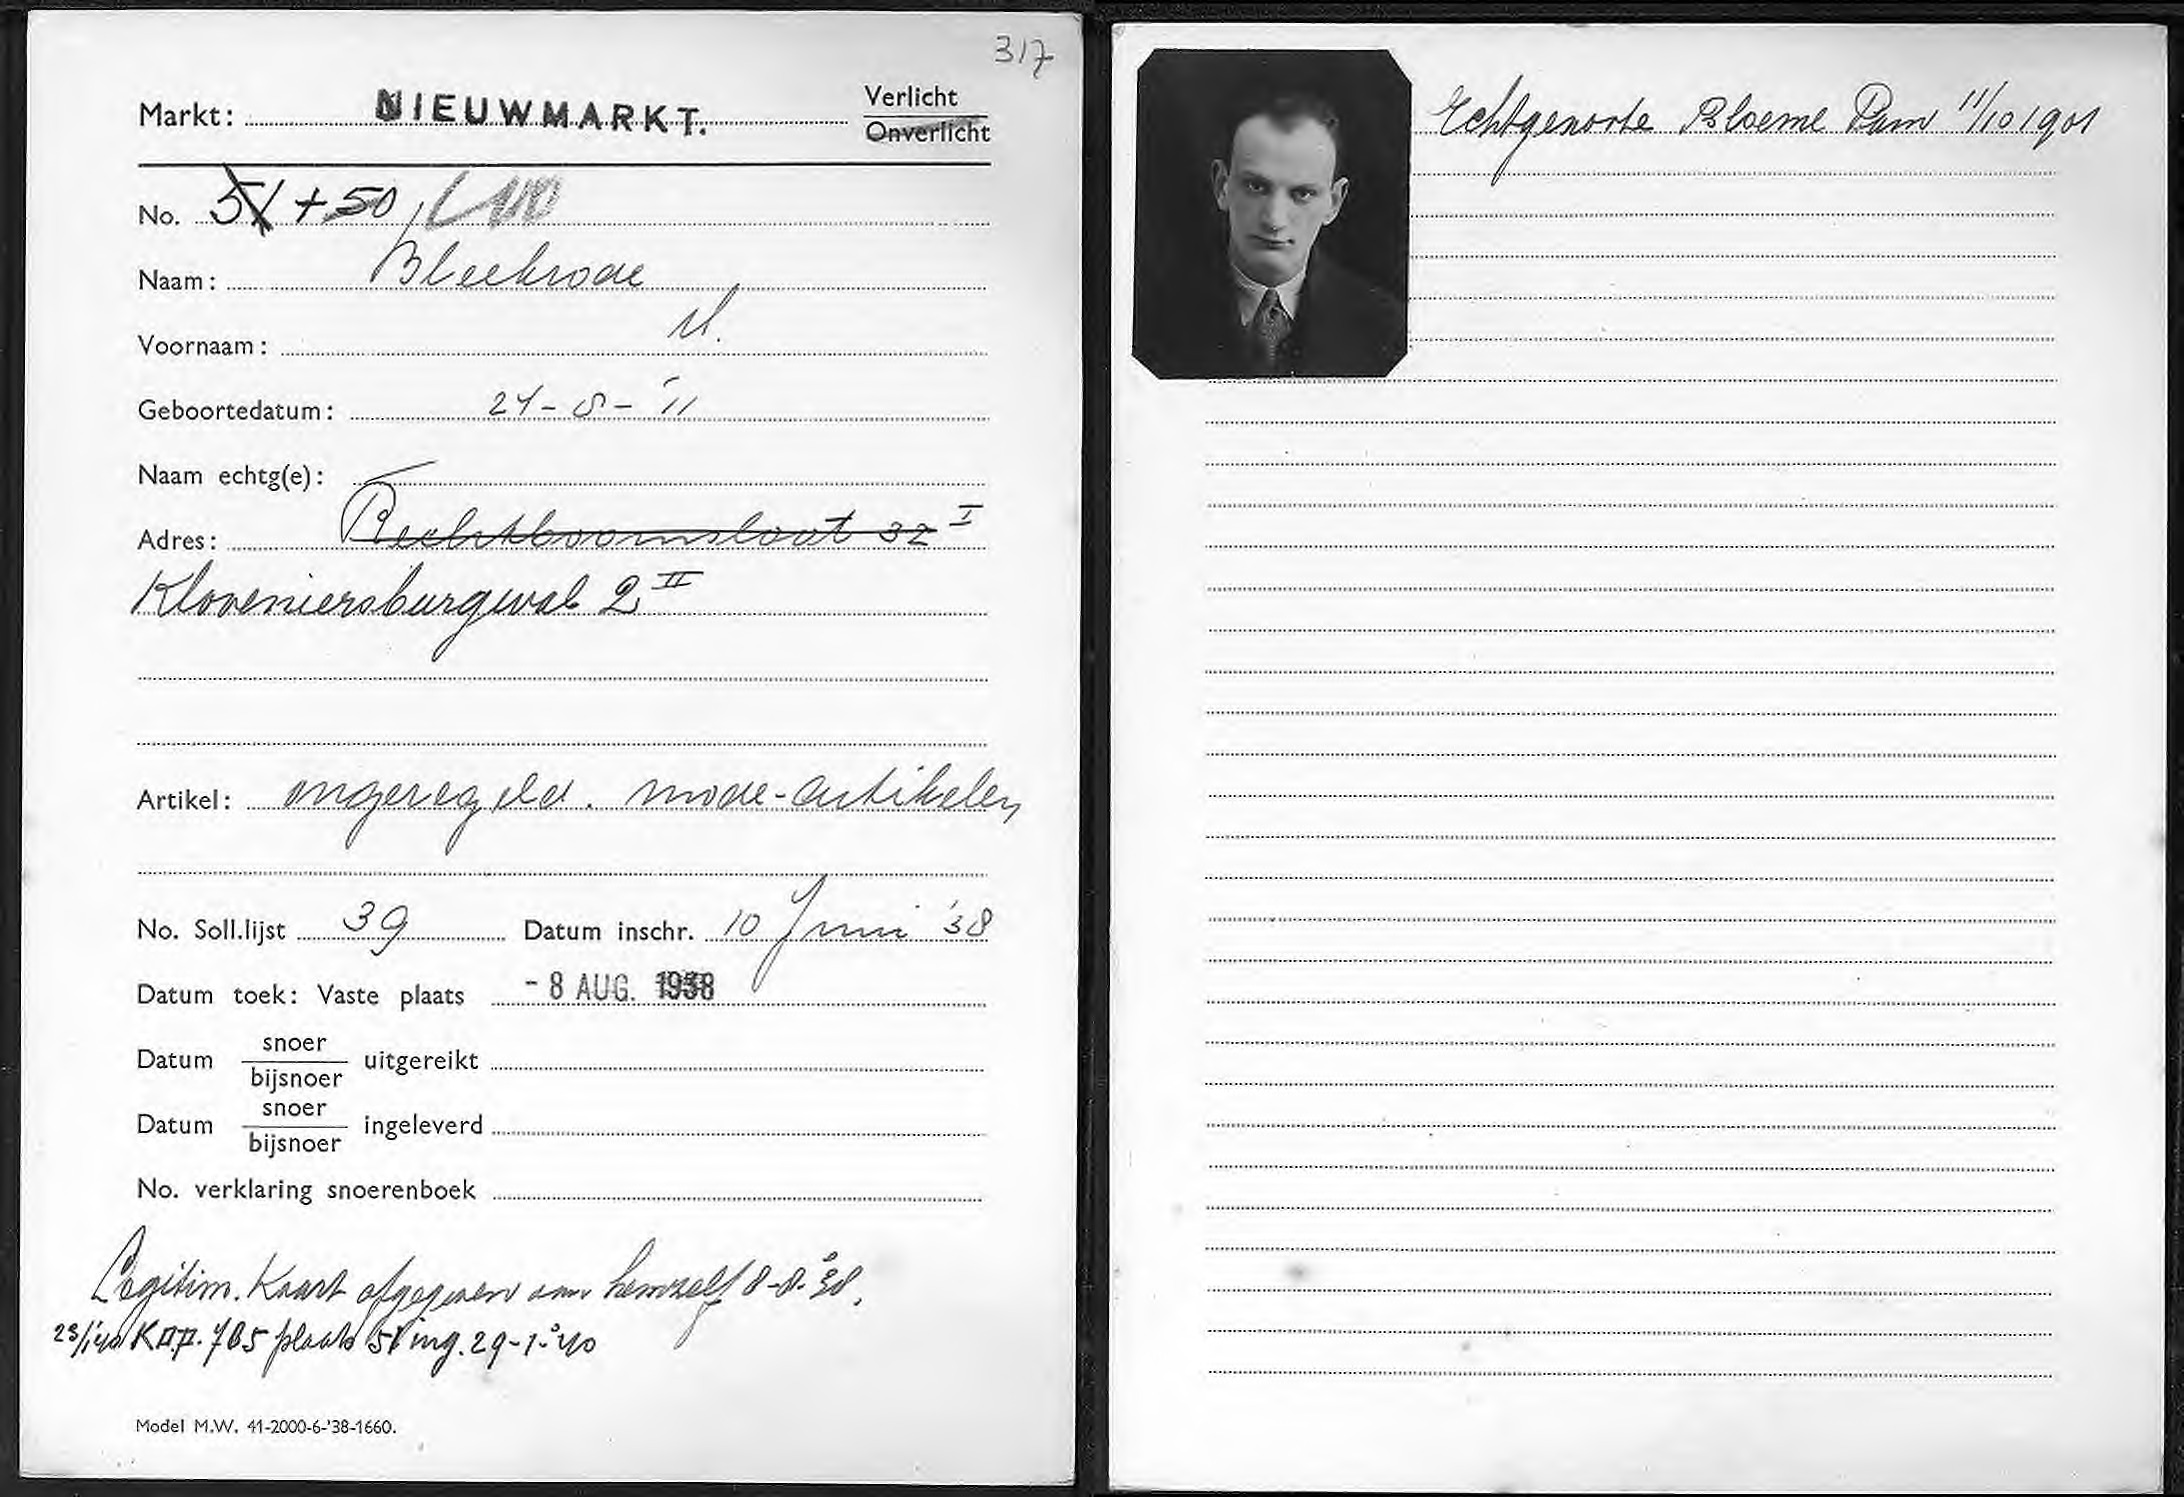 317
Markt: NIEUWMARKT. Verlicht
Onverlicht
No. 51 + 50
Naam: Bleekrode
Voornaam: M.
Geboortedatum: 24-8-'11
Naam echtg(e):
Adres: Rechtboomsloot 32 I
Kloveniersburgwal 2 II
Artikel: ongeregeld. mode-artikelen
No. Soll.lijst 39 Datum inschr. 10 Juni '38
Datum toek: Vaste plaats - 8 AUG. 1938
Datum snoer uitgereikt
bijsnoer
Datum snoer ingeleverd
bijsnoer
No. verklaring snoerenboek
Legitim. Kaart afgegeven aan hemzelf 8-8-'38.
plaats 51 ing. 29-1-'40
Model M.W. 41-2000-6-'38-1660.
Echtgenoote Bloeme Dam 11/10 1901